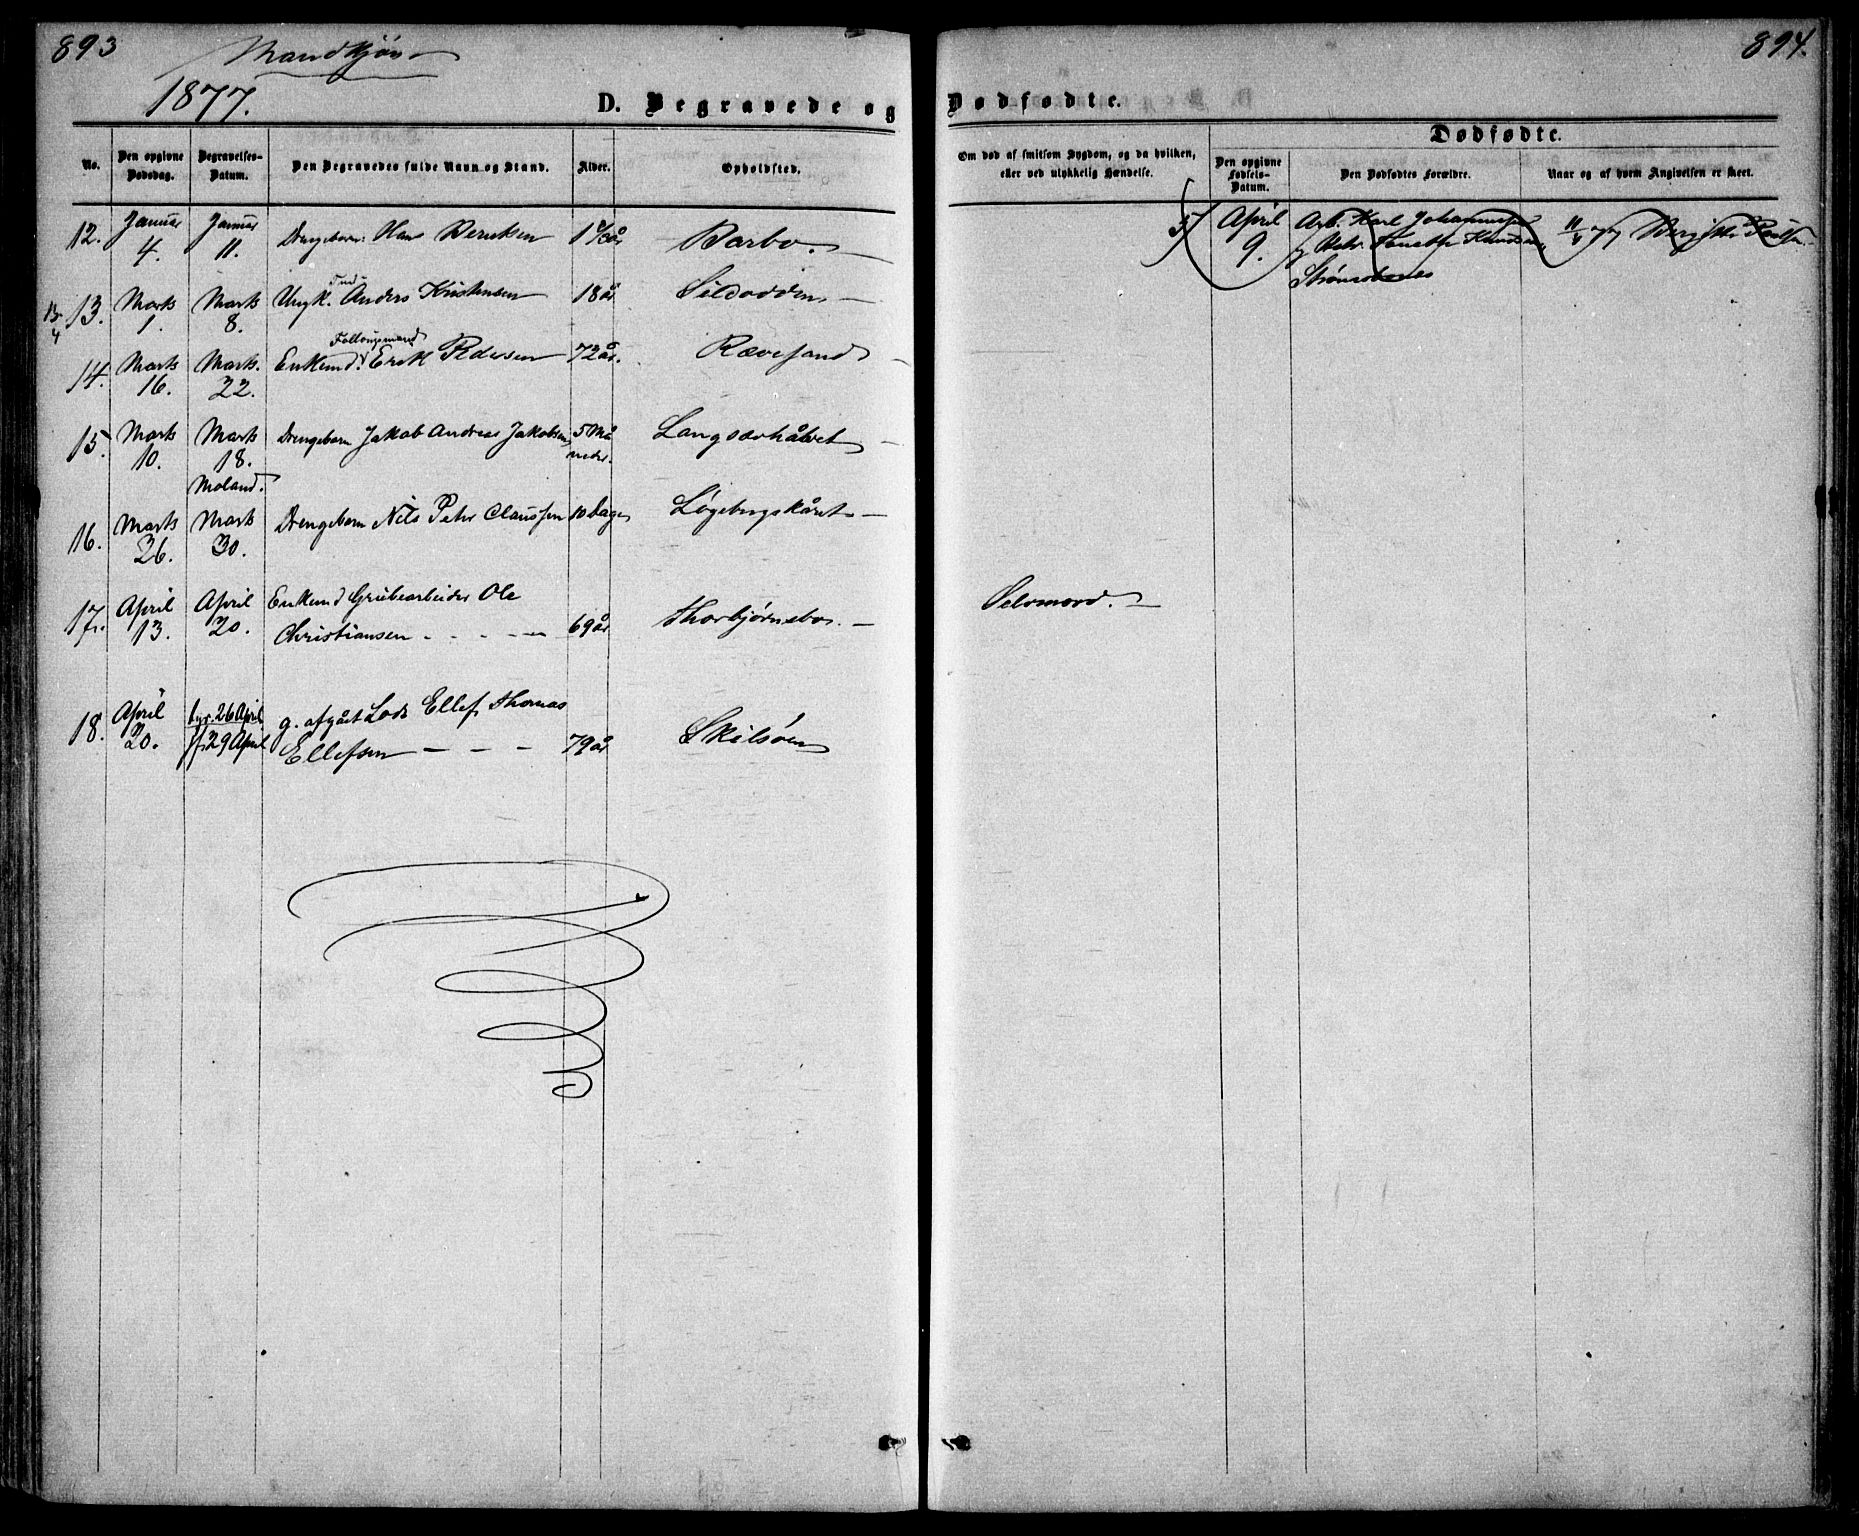 893
Mandkjøn
1877.
D. Begravede og
No.
Den opgivne Dødsdag.
Begravelses-Datum.
Den Begravedes fulde Navn og Stand.
Alder.
Opholdsted.
12. Januar 4. Januar 11. Drengebarn: Hans 1 år Barbo.
13. Marts 1. Marts 8. Ungk. Anders Kristensen 18 år
14. Marts 16. Marts. 22. Enkemd. Erik Pedersen 72 år. Rævesand
15. Marts 10. Marts 18. Drengebarn Jakob Andreas Jakobsen 5 Måneder.
Moland.
16. Marts 26. Marts 30. Drengebarn Nils Peter Claussen 10 Dage
17. April 13. April 20. Enkemd Grubearbeider Ole
Christiansen - - - - - 69 år Thorbjørnsbo.
18. April 20. 26 April g. afgået Lods Ellef Thomas
29 April Ellefsen - - - 79 år Skilsøen
894.
Dødfødte.
Om død af smitsom Sygdom, og da hvilken, eller ved ulykkelig Hændelse.
Dødfødte.
Den opgivne Fødsels-Datum.
Den Dødfødtes Forældre.
Naar og af hvem Angivelsen er skeet.
5 April 9. Arb. Karl Johannesen
Strømsbunes
Selvmord.